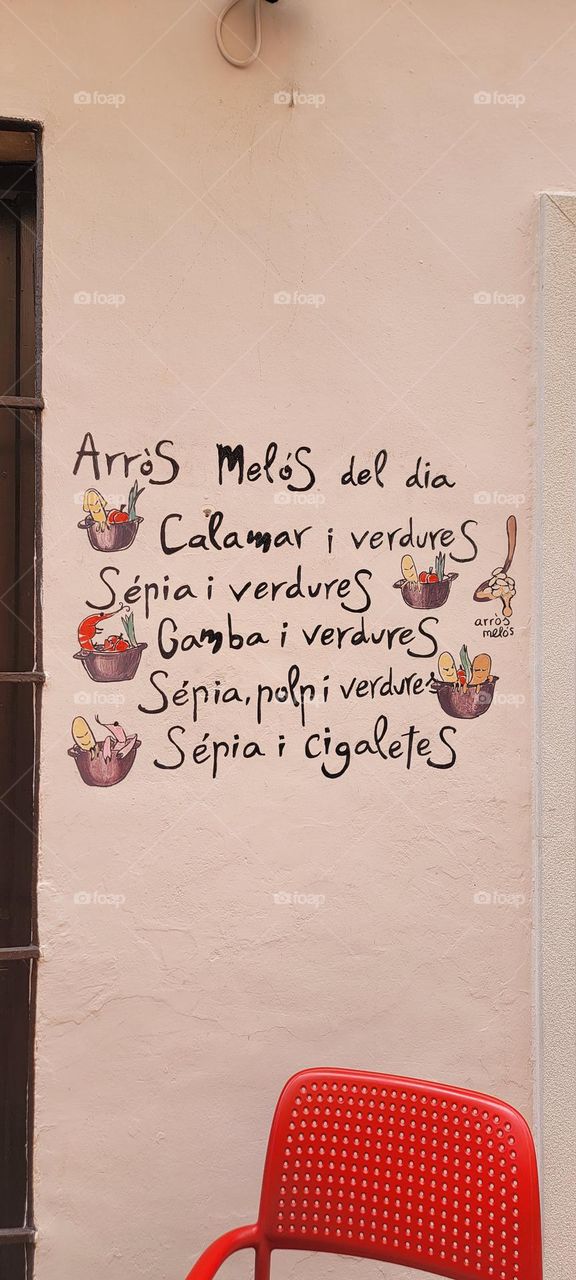 Arròs Melós del dia
Calamar i verdures
Sépia i verdures
arròs
melós
Gamba i verdures
Sépia, polp i verdures
Sépia i cigaletes
foap